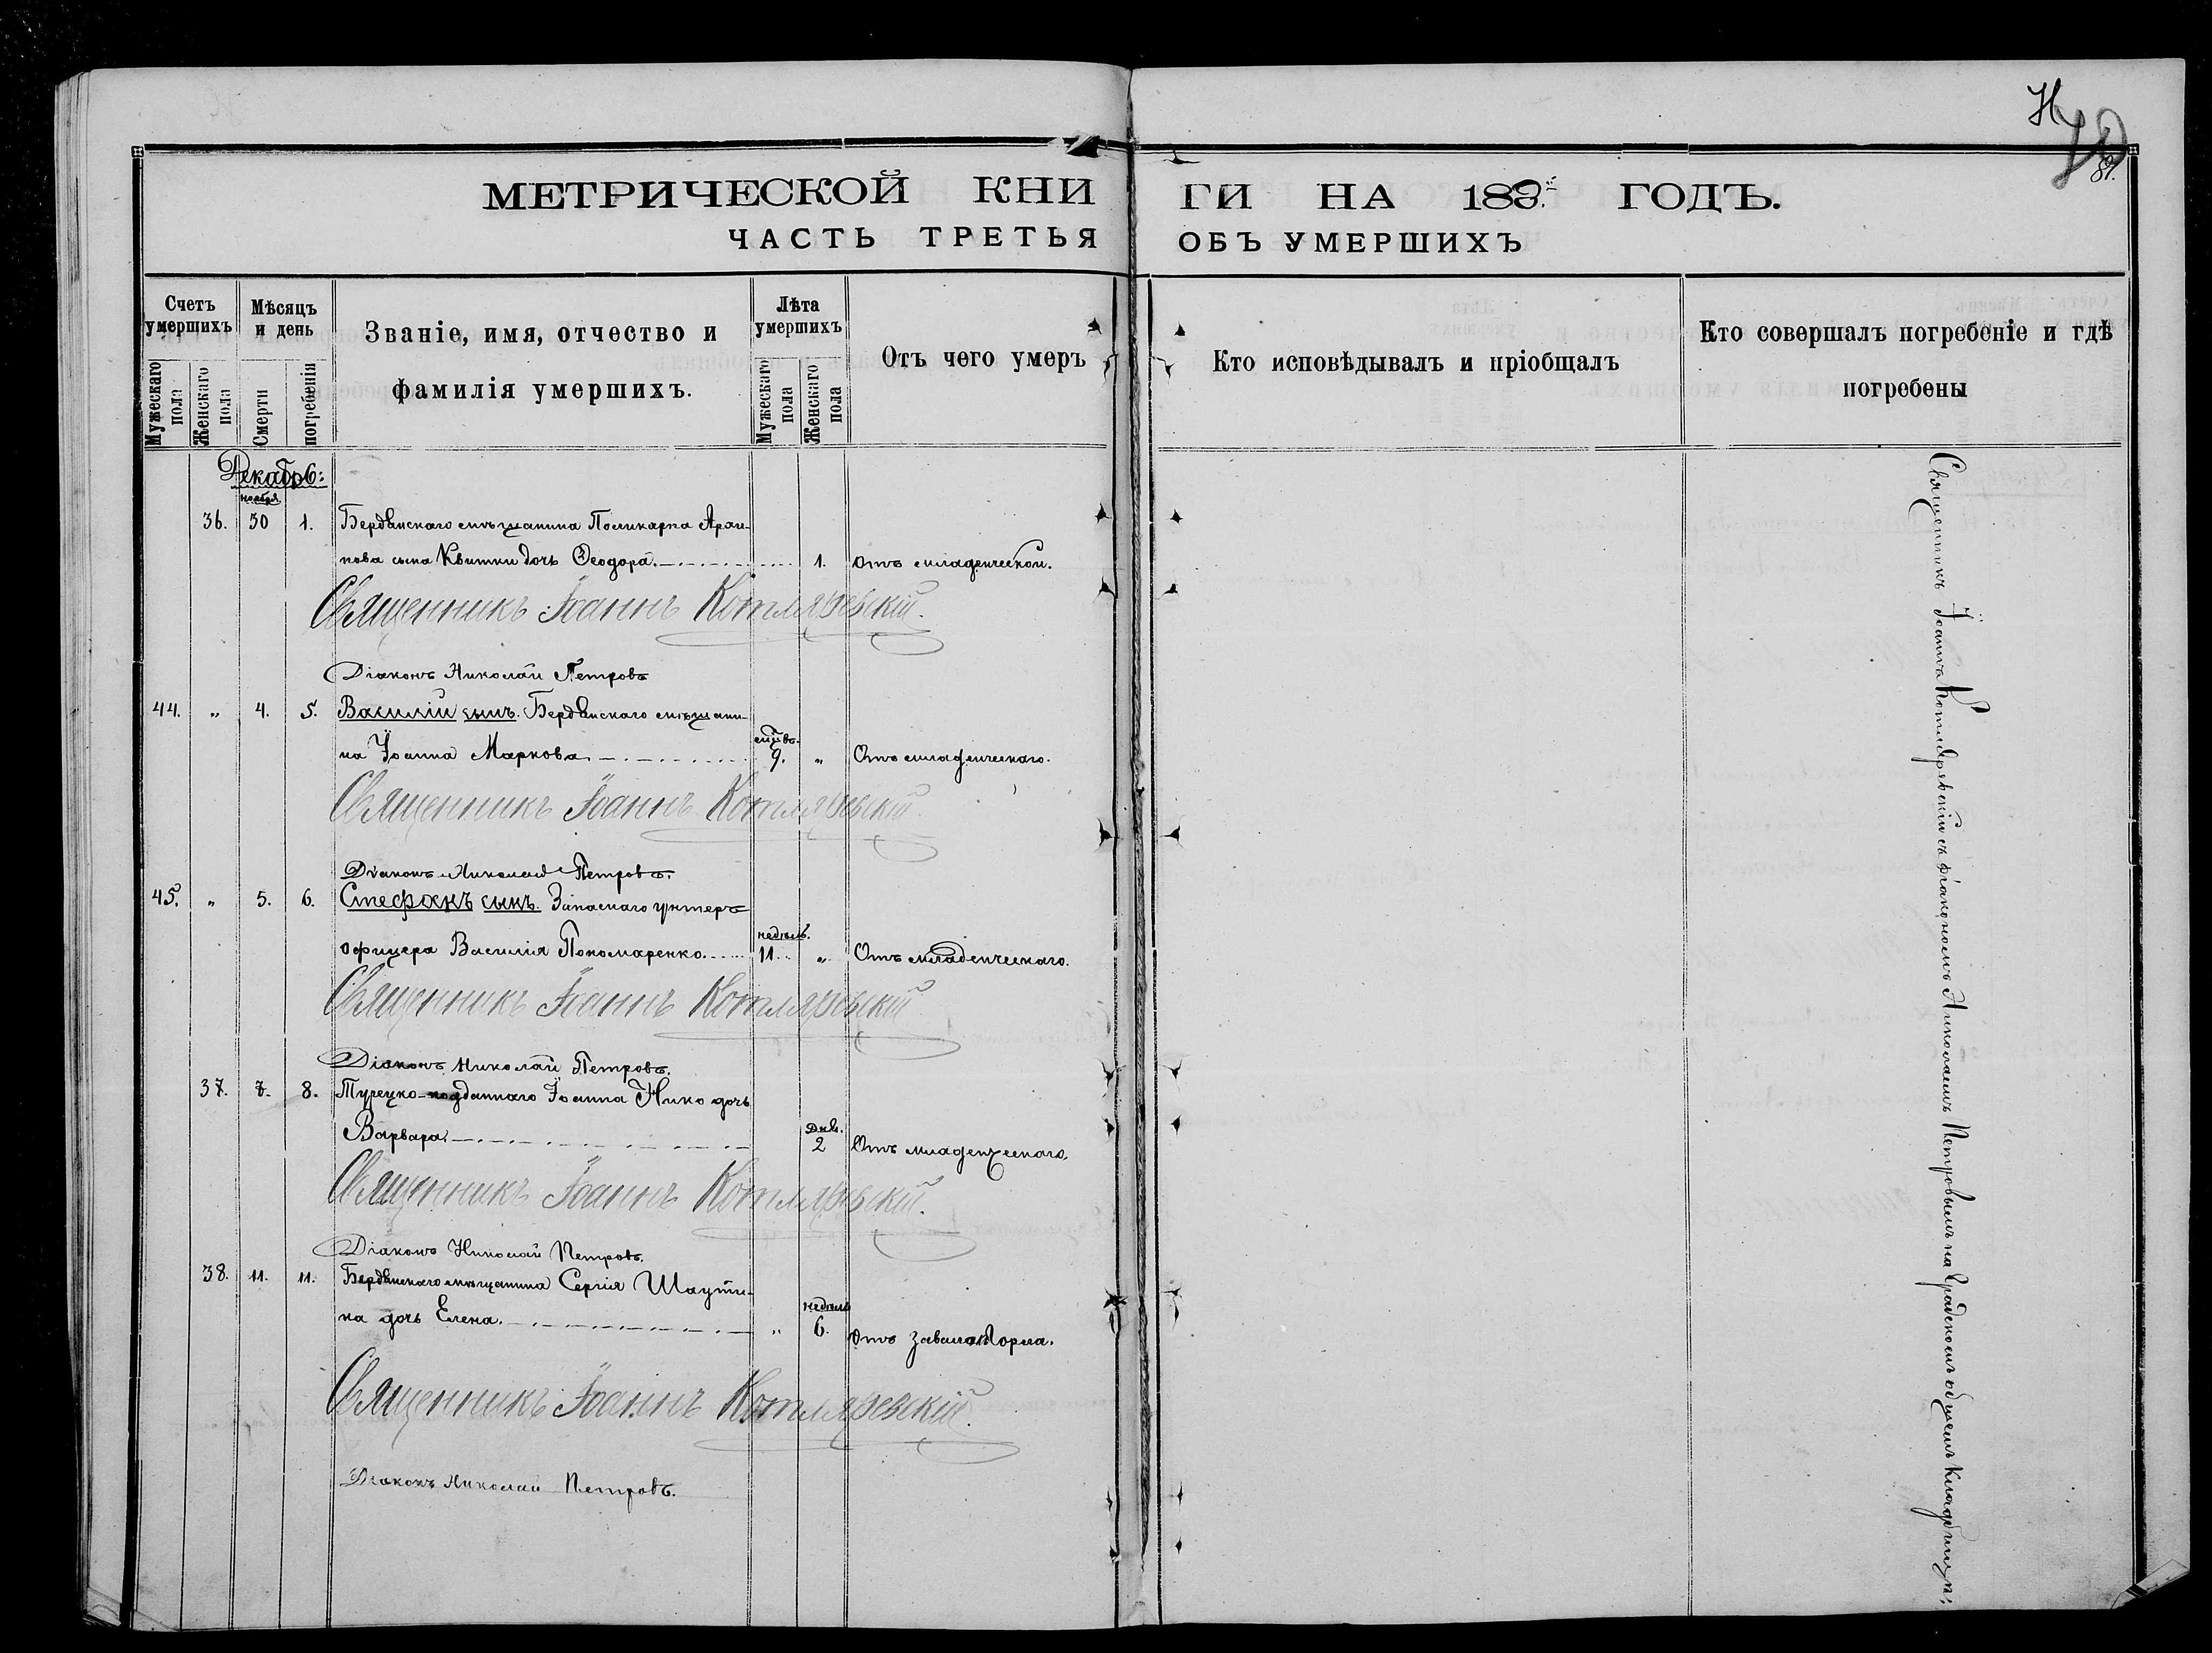 Н
81.
МЕТРИЧЕСКОЙ КНИГИ НА 188 ГОДЪ.
ЧАСТЬ ТРЕТЬЯ ОБЪ УМЕРШИХЪ
Счетъ умершихъ
Мужескаго пола
Женскаго пола
Мѣсяцъ и день
Смерти
погребенія
Званіе, имя, отчество и
фамилія умершихъ.
Лѣта умершихъ
Мужескаго пола
Женскаго пола
Отъ чего умеръ
Кто исповѣдывалъ и пріобщалъ
Кто совершалъ погребеніе и гдѣ
погребены
Декабрь:
ноября
36. 30 1. Бердянскаго мѣщанина Поликарпа
нова сына Квитки дочь Ѳеодора. 1. Отъ младенческой.
Священникъ Іоаннъ Котляревскій.
Діаконъ Николай Петровъ
44. " 4. 5. Василій сынъ. Бердянскаго мѣщани-
на Іоанна Маркова. 9. " Отъ младенческаго.
Священникъ Іоаннъ Котляревскій
Діаконъ Николай Петровъ.
45. " 5. 6. Стефанъ сынъ. Запаснаго унтеръ
недѣль.
офицера Василія Пономаренко. 11. " Отъ младенческаго.
Священникъ Іоаннъ Котляревскій
Діаконъ Николай Петровъ.
37. 7. 8. Турецко-подданнаго Іоанна Нико дочь
Варвара. днѣ. 2 Отъ младенческаго.
Священникъ Іоаннъ Котляревскій.
Діаконъ Николай Петровъ.
38. 11. 11. Бердянскаго мѣщанина Сергія
недѣль
на дочь Елена. " 6. Отъ завалокъ горла.
Священникъ Іоаннъ Котляревскій.
Діаконъ Николай Петровъ.
Священникъ Іоаннъ Котляревскій съ діакономъ Николаемъ Петровымъ на Градскомъ общемъ кладбищѣ.